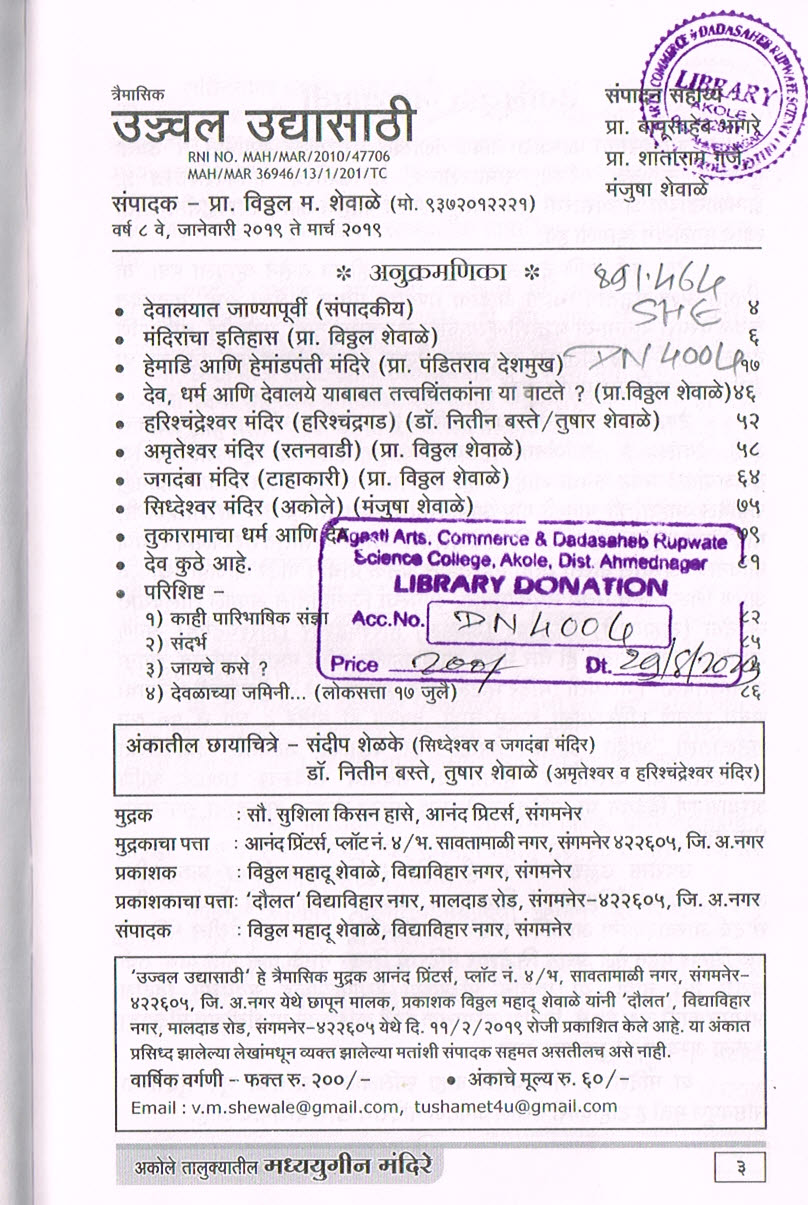 त्रैमासिक
उज्वल उद्यासाठी
RNI NO. MAH/MAR/2010/47706
MAH/MAR 36946/13/1/201/TC
संपादक – प्रा. विठ्ठल म. शेवाळे (मो. ९३७२०१२२२१)
वर्ष ८ वे, जानेवारी २०१९ ते मार्च २०१९
संपादन सहाय्य
प्रा. बापूसाहेब
प्रा. शांताराम गुंजे
मंजुषा शेवाळे
COMMERCE & DADASAHEB RUPWATE SCIENCE COLLEGE
LIBRARY
AKOLE
* अनुक्रमणिका *
891.464
SHE
DN 4004
• देवालयात जाण्यापूर्वी (संपादकीय) ४
• मंदिरांचा इतिहास (प्रा. विठ्ठल शेवाळे) ६
• हेमाडि आणि हेमांडपंती मंदिरे (प्रा. पंडितराव देशमुख) १७
• देव, धर्म आणि देवालये याबाबत तत्त्वचिंतकांना या वाटते ? (प्रा.विठ्ठल शेवाळे) ४६
• हरिश्चंद्रेश्वर मंदिर (हरिश्चंद्रगड) (डॉ. नितीन बस्ते/तुषार शेवाळे) ५२
• अमृतेश्वर मंदिर (रतनवाडी) (प्रा. विठ्ठल शेवाळे) ५८
• जगदंबा मंदिर (टाहाकारी) (प्रा. विठ्ठल शेवाळे) ६४
• सिध्देश्वर मंदिर (अकोले) (मंजुषा शेवाळे) ७५
• तुकारामाचा धर्म आणि देव ७९
• देव कुठे आहे. ८१
• परिशिष्ट –
१) काही पारिभाषिक संज्ञा ८२
२) संदर्भ ८५
३) जायचे कसे ?
४) देवळाच्या जमिनी... (लोकसत्ता १७ जुलै) ८६
Agasti Arts, Commerce & Dadasaheb Rupwate
Science College, Akole, Dist. Ahmednagar
LIBRARY DONATION
Acc.No. DN 4004
Price 200/ Dt. 29/8/2019
अंकातील छायाचित्रे – संदीप शेळके (सिध्देश्वर व जगदंबा मंदिर)
डॉ. नितीन बस्ते, तुषार शेवाळे (अमृतेश्वर व हरिश्चंद्रेश्वर मंदिर)
मुद्रक : सौ. सुशिला किसन हासे, आनंद प्रिटर्स, संगमनेर
मुद्रकाचा पत्ता : आनंद प्रिंटर्स, प्लॉट नं. ४/भ. सावतामाळी नगर, संगमनेर ४२२६०५, जि. अ.नगर
प्रकाशक : विठ्ठल महादू शेवाळे, विद्याविहार नगर, संगमनेर
प्रकाशकाचा पत्ताः ‘दौलत’ विद्याविहार नगर, मालदाड रोड, संगमनेर–४२२६०५, जि. अ.नगर
संपादक : विठ्ठल महादू शेवाळे, विद्याविहार नगर, संगमनेर
‘उज्वल उद्यासाठी’ हे त्रैमासिक मुद्रक आनंद प्रिंटर्स, प्लॉट नं. ४/भ, सावतामाळी नगर, संगमनेर–
४२२६०५, जि. अ.नगर येथे छापून मालक, प्रकाशक विठ्ठल महादू शेवाळे यांनी ‘दौलत’, विद्याविहार
नगर, मालदाड रोड, संगमनेर–४२२६०५ येथे दि. ११/२/२०१९ रोजी प्रकाशित केले आहे. या अंकात
प्रसिध्द झालेल्या लेखांमधून व्यक्त झालेल्या मतांशी संपादक सहमत असतीलच असे नाही.
वार्षिक वर्गणी – फक्त रु. २००/– • अंकाचे मूल्य रु. ६०/–
Email : v.m.shewale@gmail.com, tushamet4u@gmail.com
अकोले तालुक्यातील मध्ययुगीन मंदिरे ३